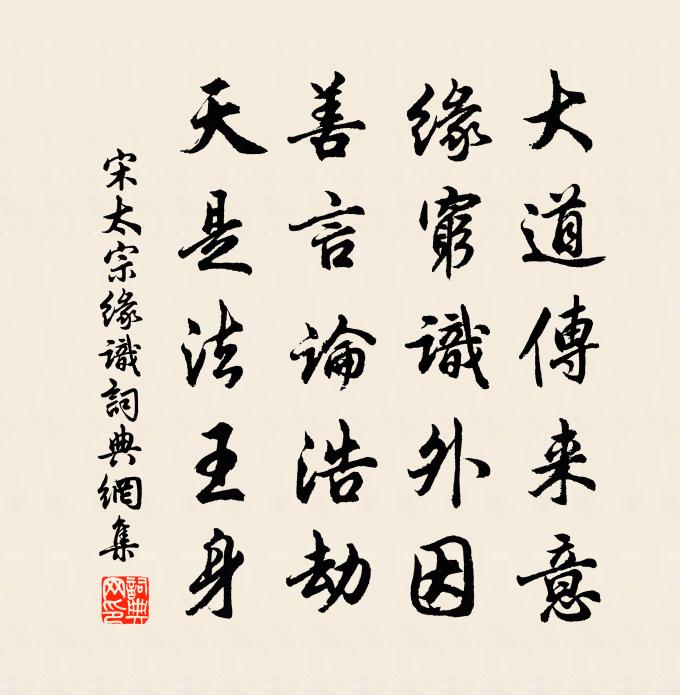 大道傳来意
緣窮識外因
善言論浩劫
天是法王身
宋太宗緣識詞典網集
詞典網印